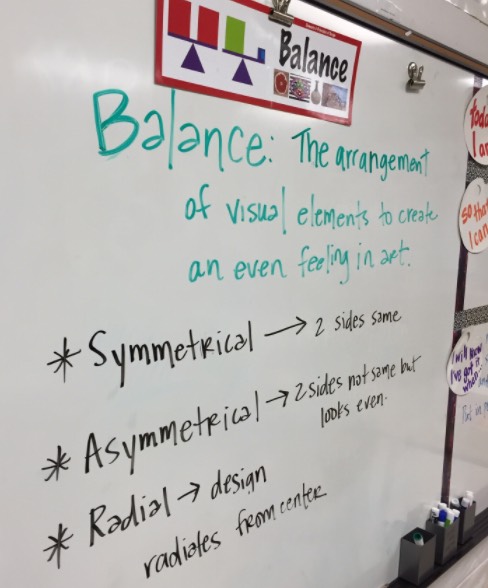 Balance
Balance: The arrangement
of visual elements to create
an even feeling in art.
* Symmetrical → 2 sides same
* Asymmetrical → 2 sides not same but
looks even.
* Radial → design
radiates from center
toda
I am
so that
I can
I will know
I've got it
when